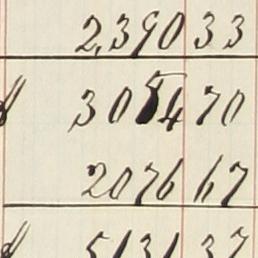 2,390 33
3054 70
2076 67
5131 37